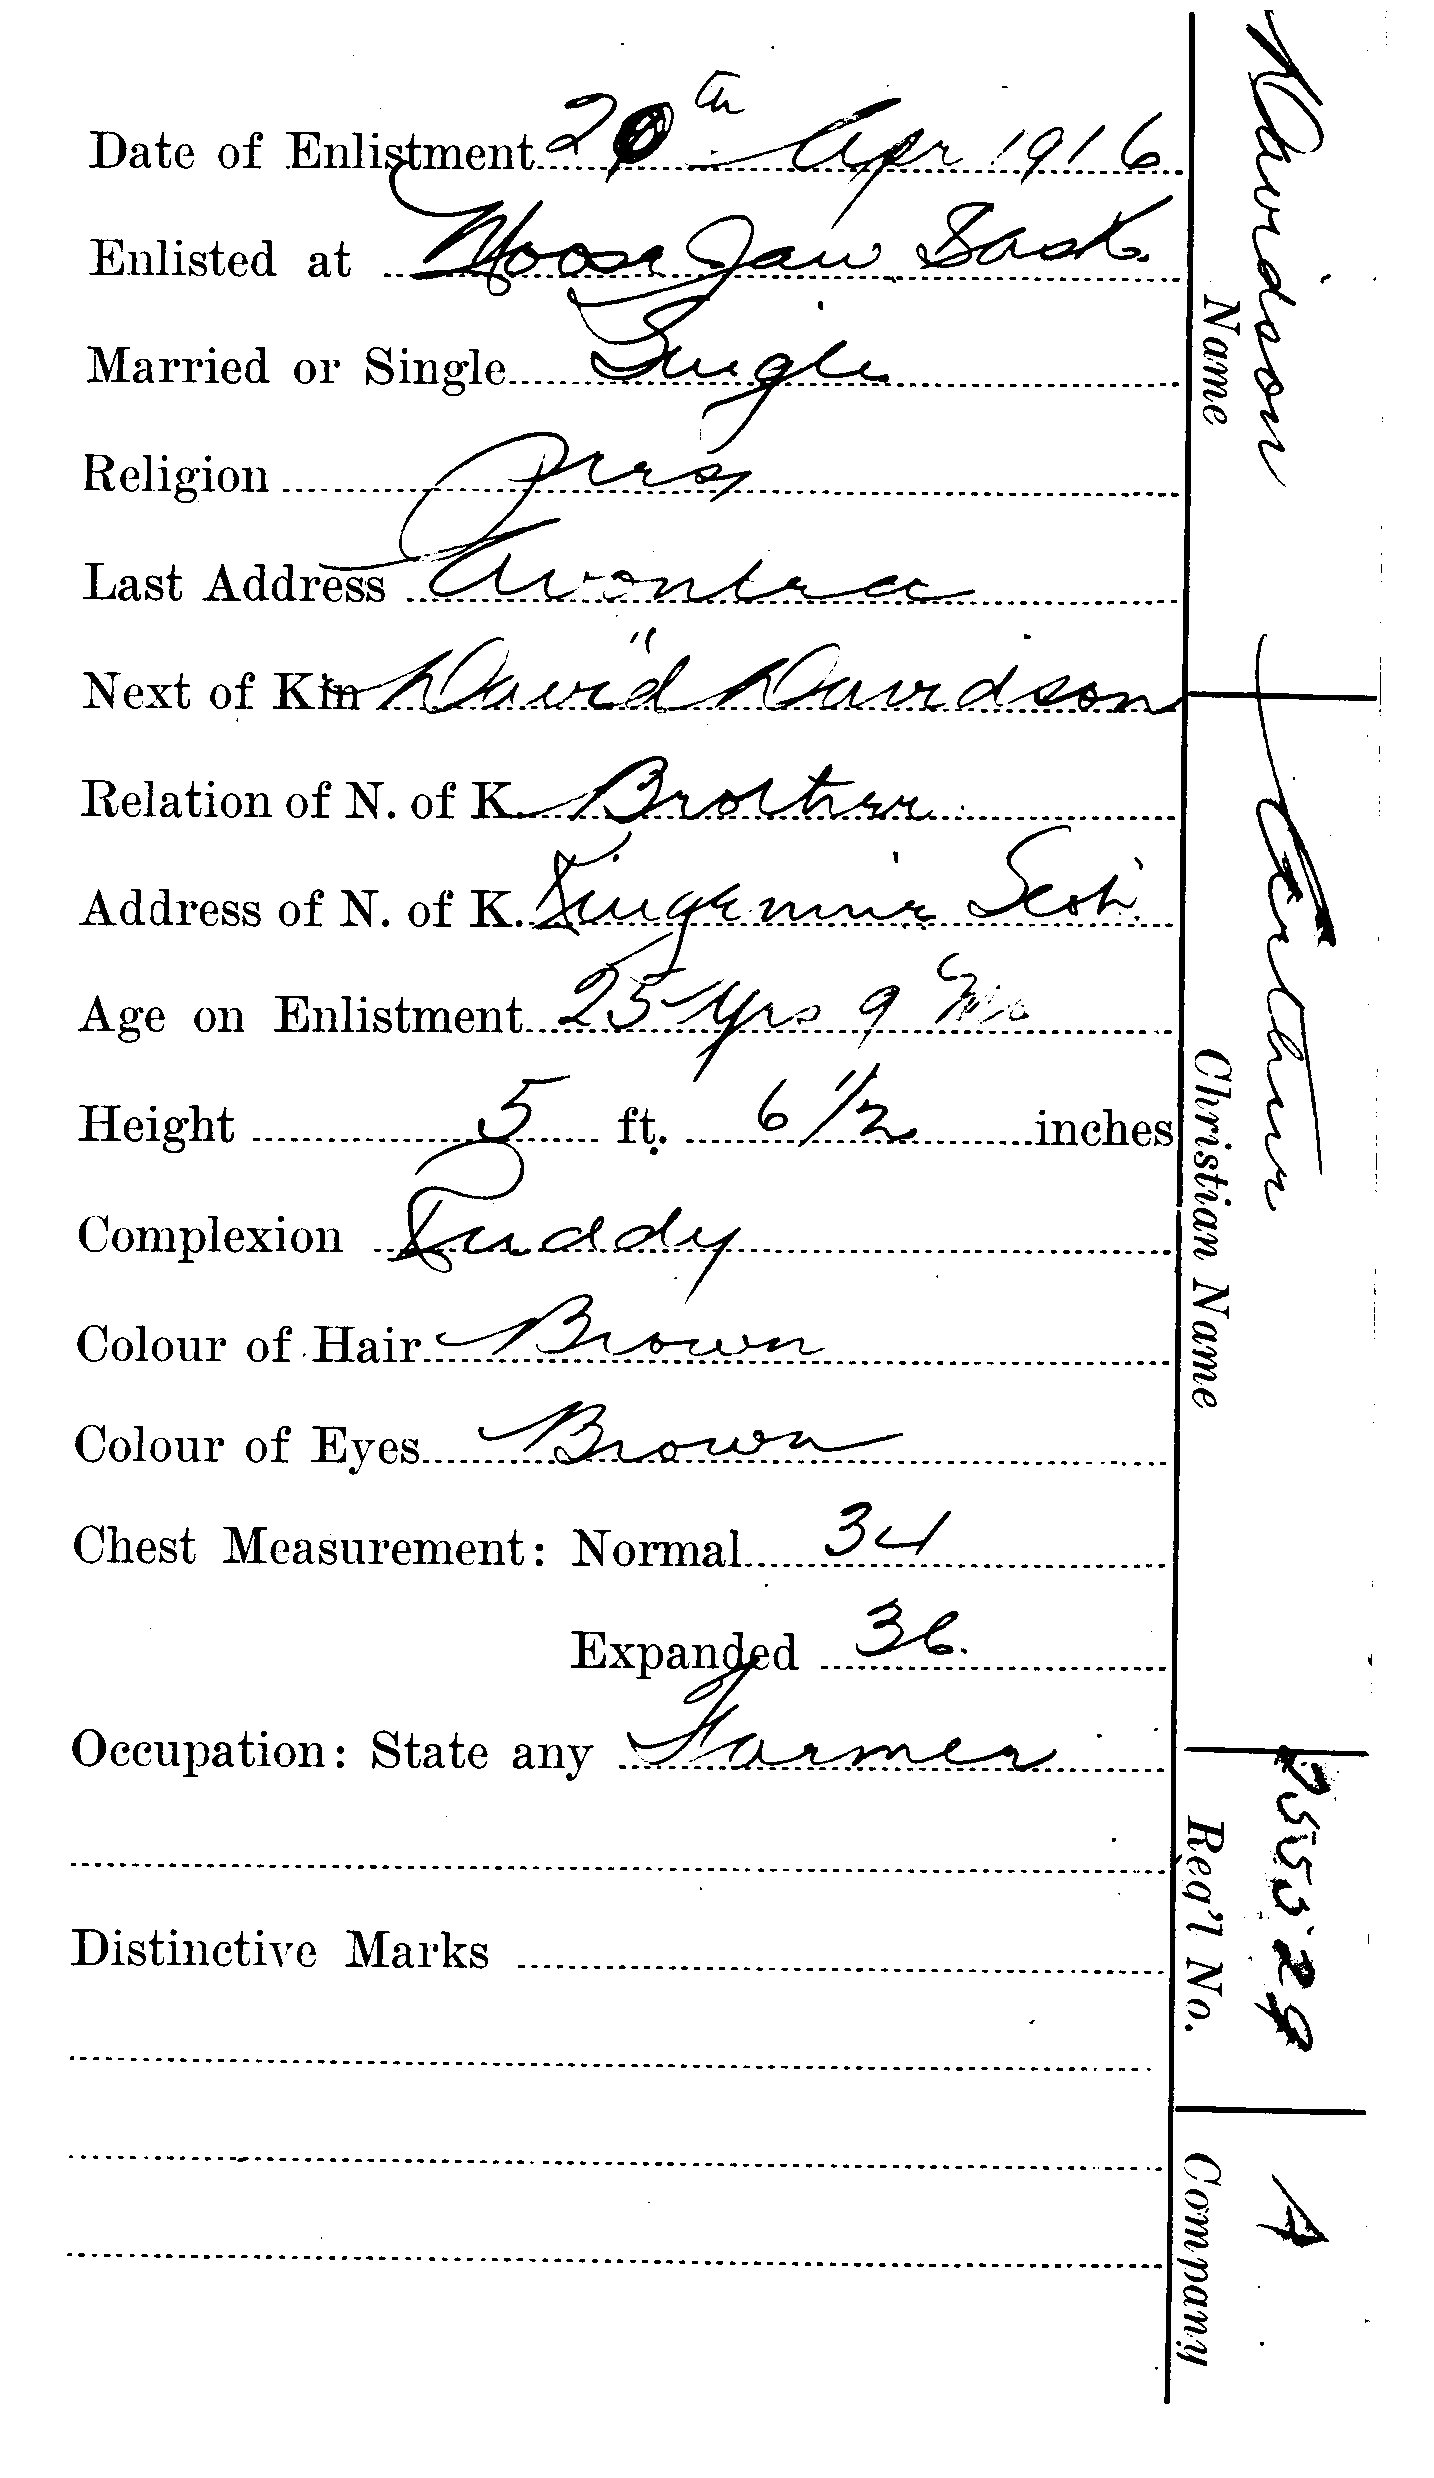 Date of Enlistment 20th Apr 1916
Enlisted at Moose Jaw Sask.
Married or Single Single
Religion Pres
Last Address Avonlea
Next of Kin David Davidson
Relation of N. of K. Brother
Address of N. of K. Scot.
Age on Enlistment 25 yrs 9 Mo
Height 5 ft. 6 1/2 inches
Complexion Ruddy
Colour of Hair Brown
Colour of Eyes Brown
Chest Measurement: Normal 34
Expanded 36.
Occupation: State any Farmer
Distinctive Marks
Davidson
Name
Arthur
Christian Name
Reg'l No.
A
Company